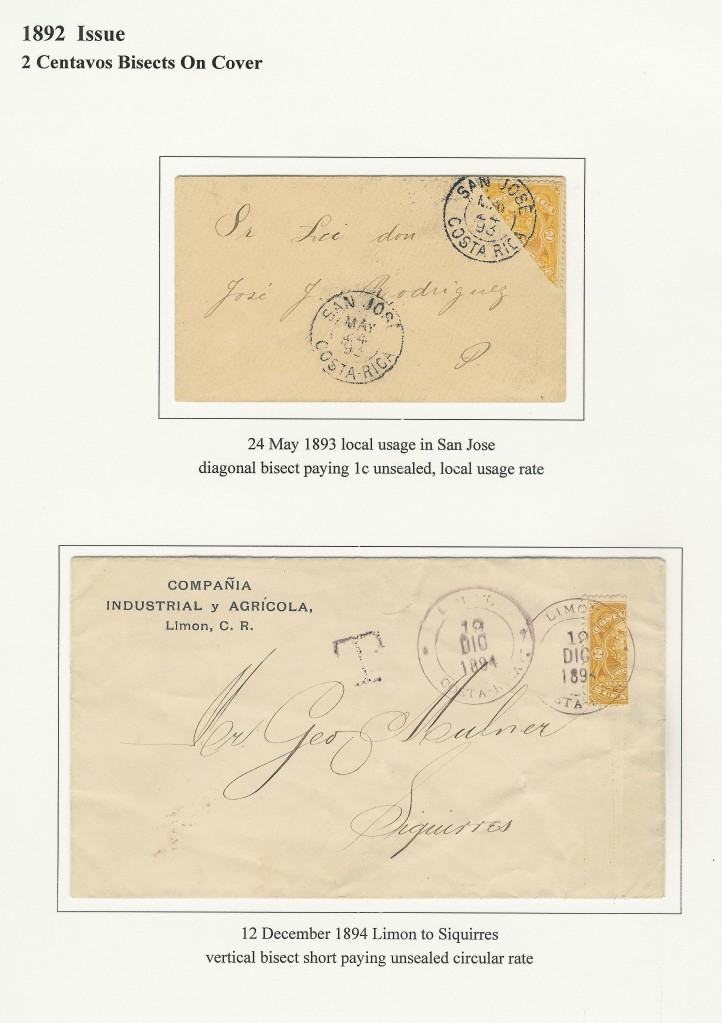 1892 Issue
2 Centavos Bisects On Cover
SAN JOSE
MAY
24
93
COSTA RICA
2
Sr Lic don
José J. Rodriguez
P.
SAN JOSE
MAY
24
93
COSTA-RICA
24 May 1893 local usage in San Jose
diagonal bisect paying 1c unsealed, local usage rate
COMPAÑIA
INDUSTRIAL y AGRÍCOLA,
Limon, C. R.
T
12
DIC
1894
LIMON
12
DIC
1894
2
Mr. Geo, Mulner
Siquirres
12 December 1894 Limon to Siquirres
vertical bisect short paying unsealed circular rate